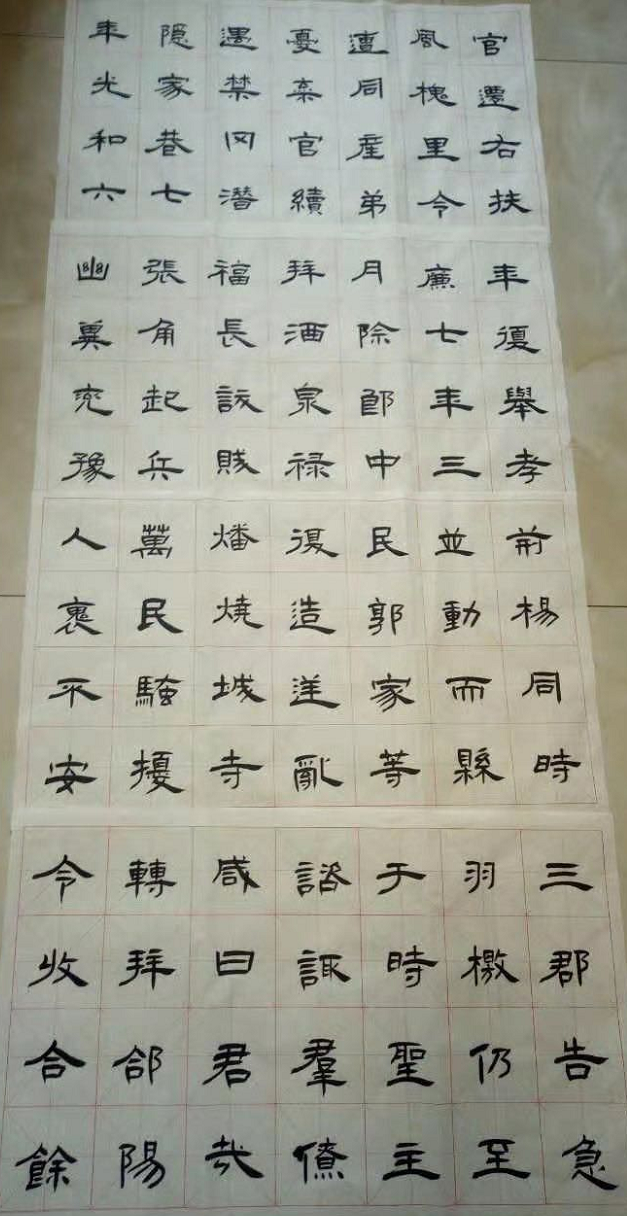 官遷右扶
風槐里令
遭同産弟
憂棄官續
遇禁冈潛
隐家巷七
年光和六
年復舉孝
廉七年三
月除郎中
拜酒泉禄
福長訞賊
張角起兵
幽冀兖豫
荊楊同時
並動而縣
民郭家等
復造逆亂
燔燒城寺
萬民騷擾
人裹不安
三郡告急
羽檄仍至
于時聖主
諮諏羣僚
咸曰君哉
轉拜郃陽
令收合餘